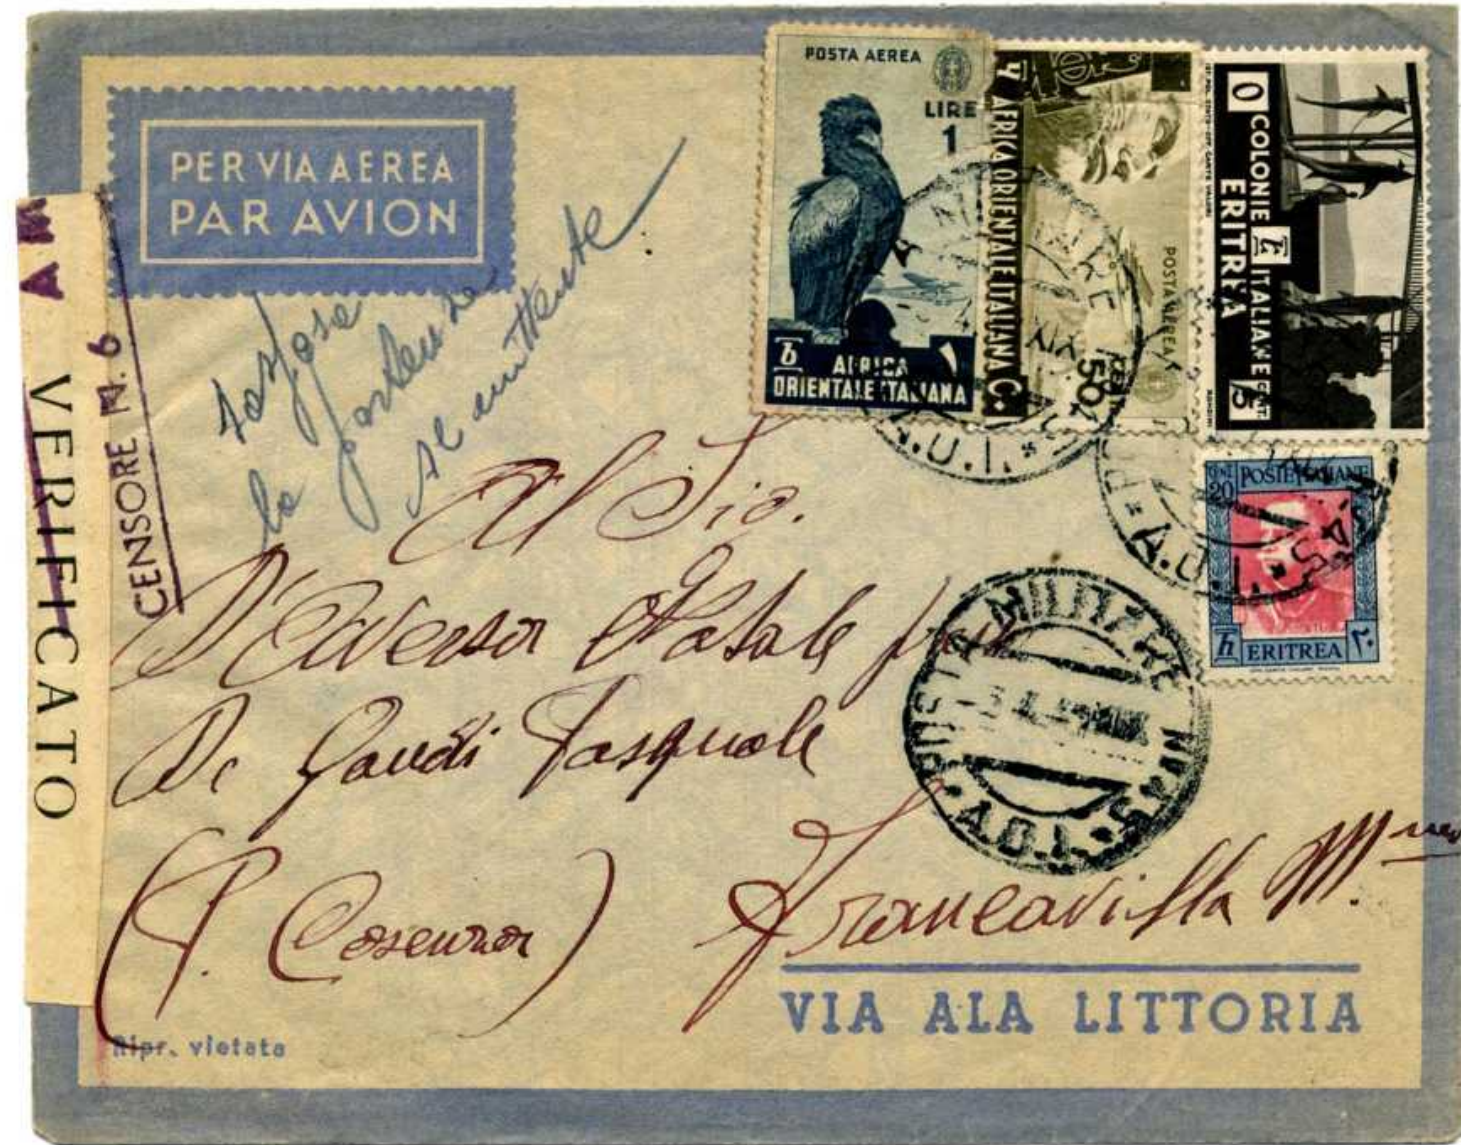 PER VIA AEREA
PAR AVION
VERIFICATO
CENSORE N. 6
sospesa
la partenza
al mittente
POSTA AEREA
LIRE
1
AFRICA
ORIENTALE ITALIANA
AFRICA ORIENTALE ITALIANA C.
50
POSTA AEREA
COLONIE ITALIANE
ERITREA
CENT
15
CENT
20
POSTE ITALIANE
ERITREA
٢٠
A.O.I.
A.O.I.
POSTA MILITARE
A.O.I.
Al Sig.
D'Aversa Natale fu
De Gaudi Pasquale
(P. Cosenza)
Francavilla M.
VIA ALA LITTORIA
Ripr. vietata